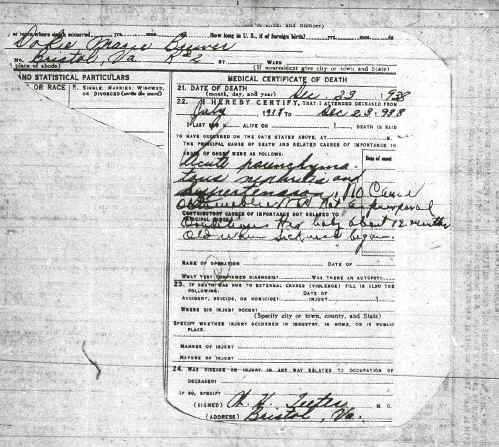 or town where death occurred yrs. mos. How long in U. S., if of foreign birth? yrs. mos.
Marie
No. Bristol, Va. R#2 St. Ward
(place of abode) (If nonresident give city or town and State)
AND STATISTICAL PARTICULARS
OR RACE 5. SINGLE, MARRIED, WIDOWED, OR DIVORCED (write the word)
MEDICAL CERTIFICATE OF DEATH
21. DATE OF DEATH (month, day, and year) Dec. 29 1938
22. I HEREBY CERTIFY, THAT I ATTENDED DECEASED FROM
July 1938 TO Dec 28 1938
I LAST SAW H ALIVE ON 1 DEATH IS SAID
TO HAVE OCCURRED ON THE DATE STATED ABOVE, AT M.
THE PRINCIPAL CAUSE OF DEATH AND RELATED CAUSES OF IMPORTANCE IN
ORDER OF ONSET WERE AS FOLLOWS: Date of onset
Acute parenchyma
tous nephritis and
hypertension, No Cause
Not a puerperal
CONTRIBUTORY CAUSES OF IMPORTANCE NOT RELATED TO
PRINCIPAL CAUSE:
Had baby about 12 months
old when sickness began.
NAME OF OPERATION DATE OF
WHAT TEST CONFIRMED DIAGNOSIS? WAS THERE AN AUTOPSY?
23. IF DEATH WAS DUE TO EXTERNAL CAUSES (VIOLENCE) FILL IN ALSO THE
FOLLOWING:
ACCIDENT, SUICIDE, OR HOMICIDE? DATE OF INJURY 1
WHERE DID INJURY OCCUR?
(Specify city or town, county, and State)
SPECIFY WHETHER INJURY OCCURRED IN INDUSTRY, IN HOME, OR IN PUBLIC
PLACE.
MANNER OF INJURY
NATURE OF INJURY
24. WAS DISEASE OR INJURY IN ANY WAY RELATED TO OCCUPATION OF
DECEASED?
IF SO, SPECIFY
(SIGNED) Teeter M. D.
(ADDRESS) Bristol, Va.